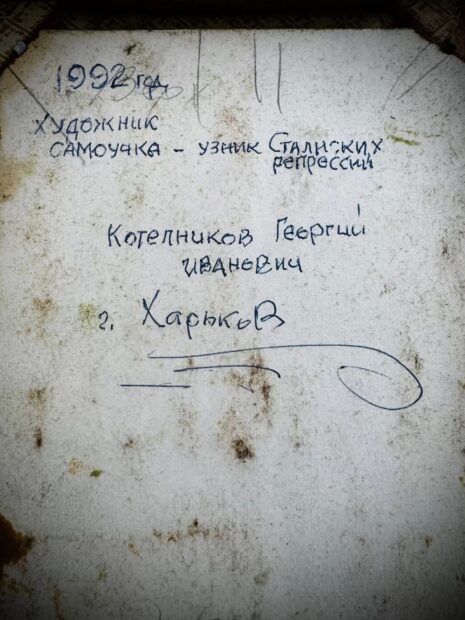 1992 год
Художник
самоучка - узник Сталиских
репрессий
Котелников Георгий
Иваневич
г. Харьков